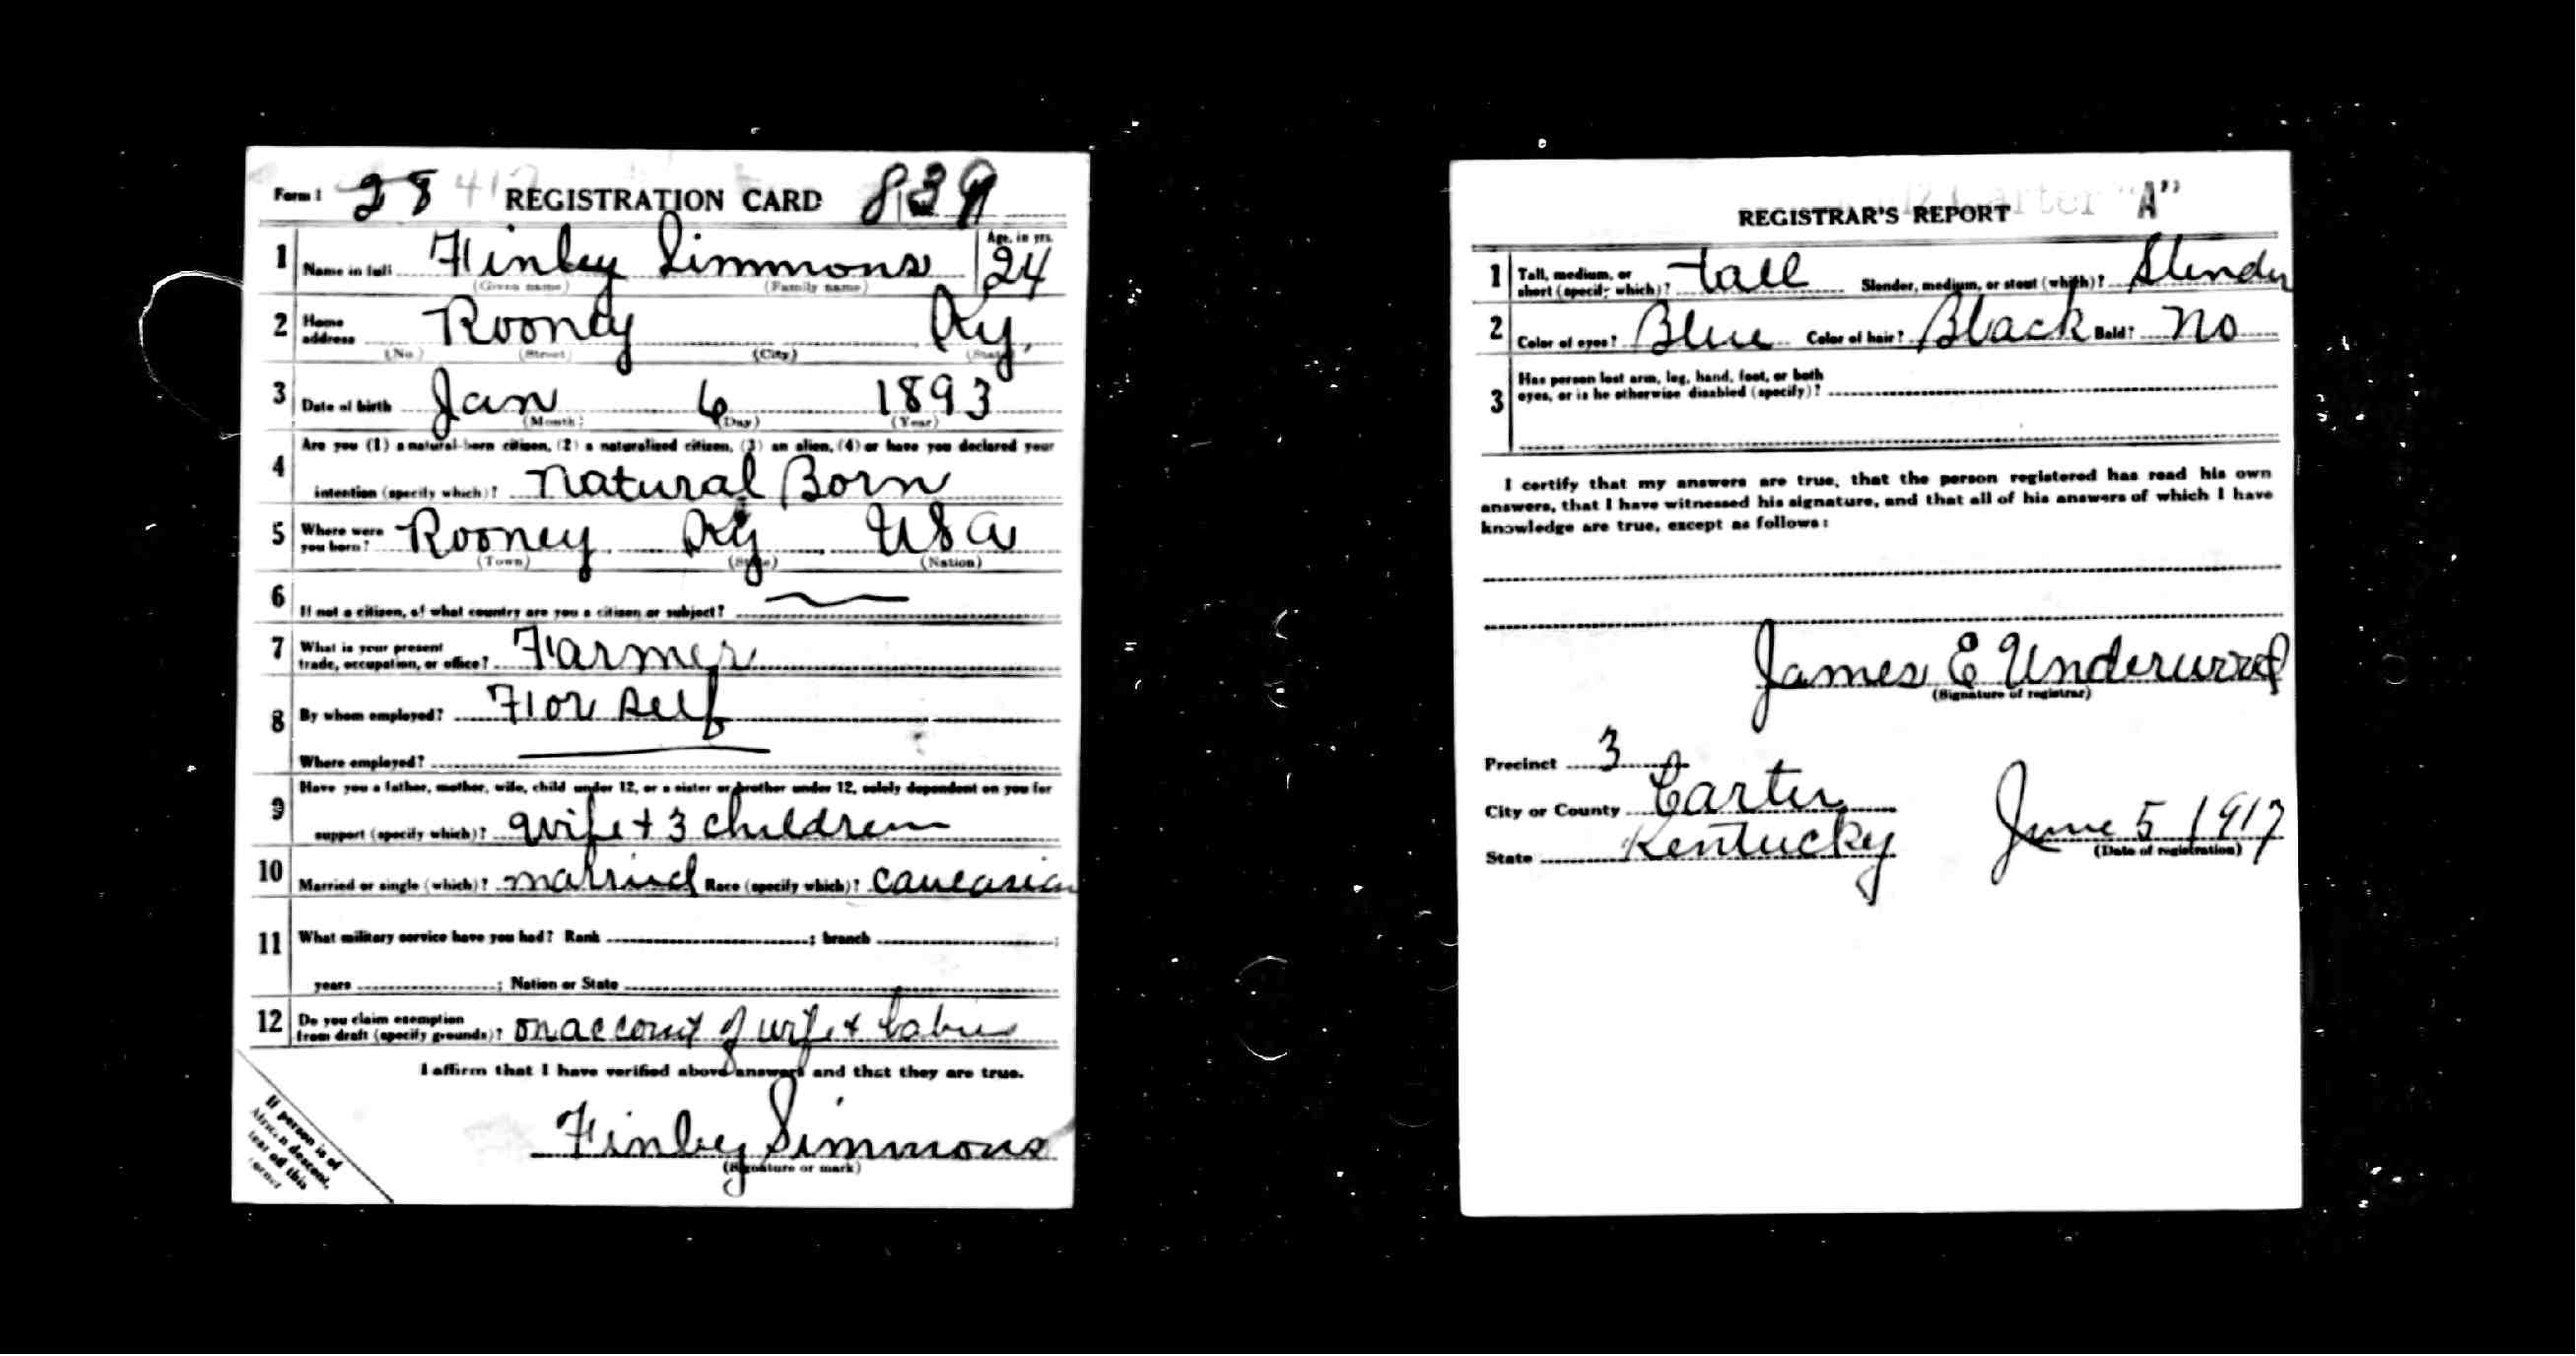 Form 1 28 REGISTRATION CARD 839
1 Name in full Finley Simmons Age, in yrs. 24
(Given name) (Family name)
2 Home address Rooney Ky,
(No.) (Street) (City) (State)
3 Date of birth Jan 6 1893
(Month) (Day) (Year)
4 Are you (1) a natural-born citizen, (2) a naturalized citizen, (3) an alien, (4) or have you declared your
intention (specify which)? Natural Born
5 Where were you born? Rooney Ky USA
(Town) (State) (Nation)
6 If not a citizen, of what country are you a citizen or subject?
7 What is your present trade, occupation, or office? Farmer
8 By whom employed? For self
Where employed?
9 Have you a father, mother, wife, child under 12, or a sister or brother under 12, solely dependent on you for
support (specify which)? wife + 3 children
10 Married or single (which)? married Race (specify which)? caucasian
11 What military service have you had? Rank ; branch ;
years ; Nation or State
12 Do you claim exemption from draft (specify grounds)? on account of wife + babies
I affirm that I have verified above answers and that they are true.
Finley Simmons
(Signature or mark)
If person is of
African descent,
tear off this
corner
"A"
REGISTRAR'S REPORT
1 Tall, medium, or short (specify which)? tall Slender, medium, or stout (which)? Slender
2 Color of eyes? Blue Color of hair? Black Bald? No
3 Has person lost arm, leg, hand, foot, or both
eyes, or is he otherwise disabled (specify)?
I certify that my answers are true, that the person registered has read his own
answers, that I have witnessed his signature, and that all of his answers of which I have
knowledge are true, except as follows:
James E Underwood
(Signature of registrar)
Precinct 3
City or County Carter
State Kentucky
June 5 1917
(Date of registration)